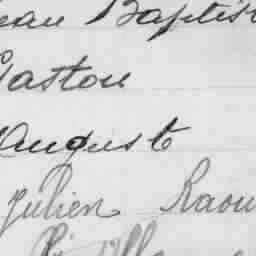 ean Baptist
Gaston
August
Julien Raou